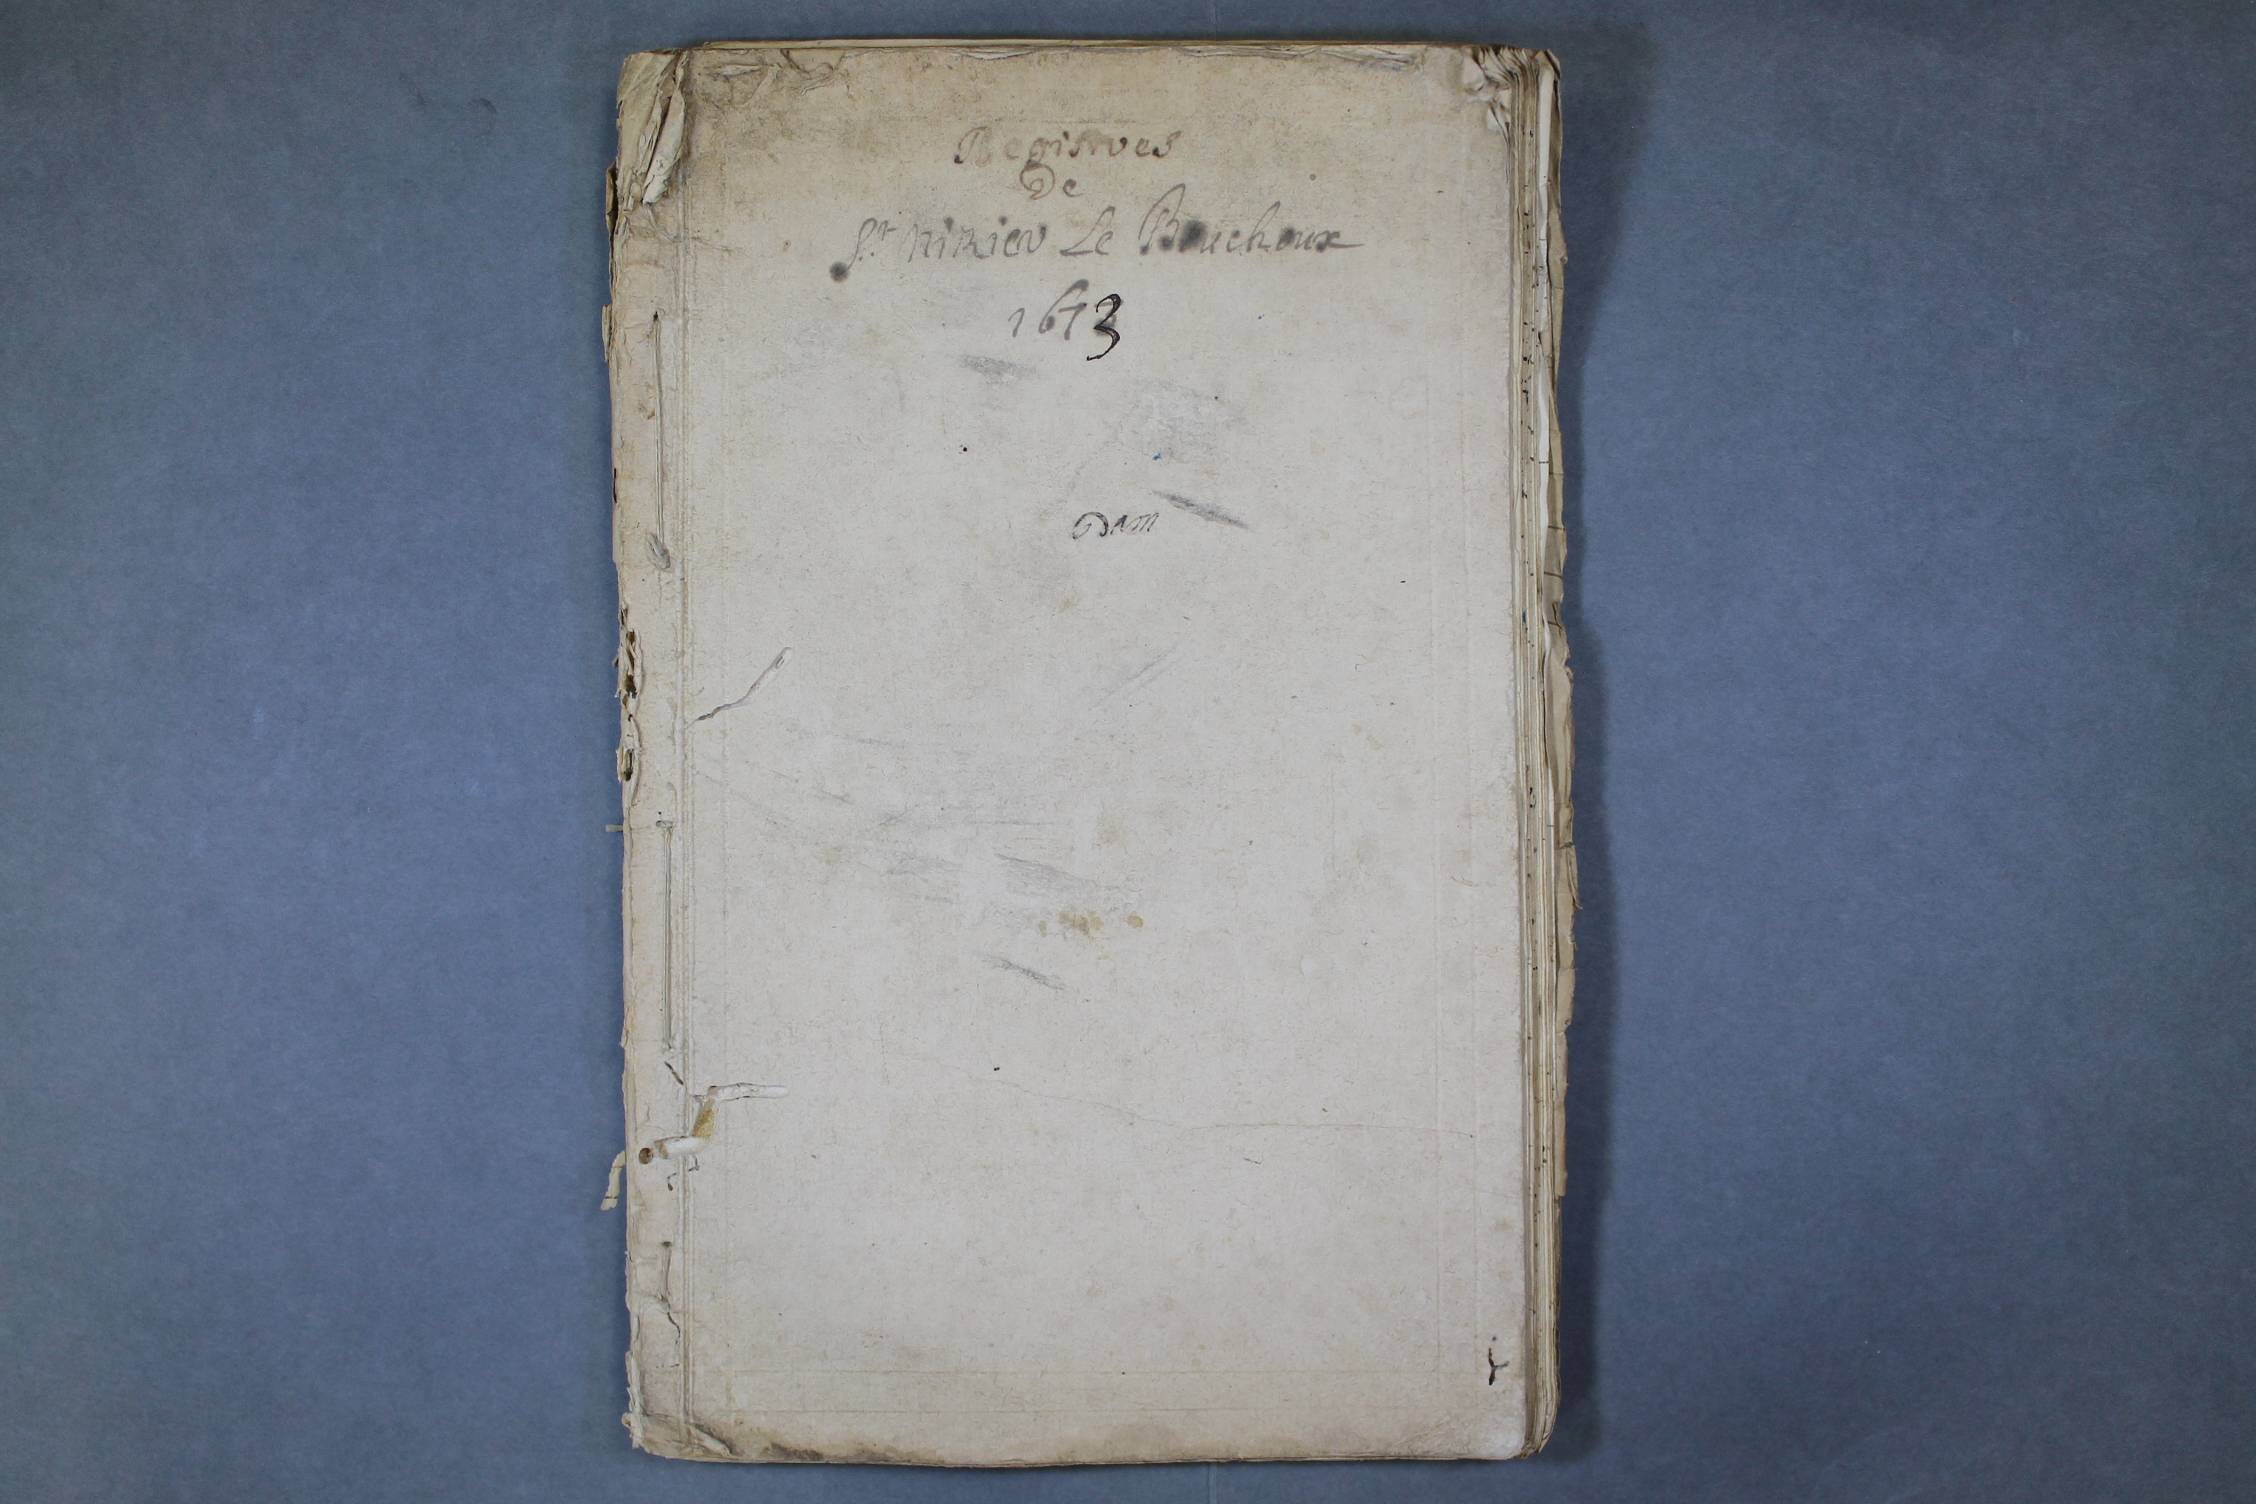 Registres
De
St Nizier Le Bouchoux
1673
Dam